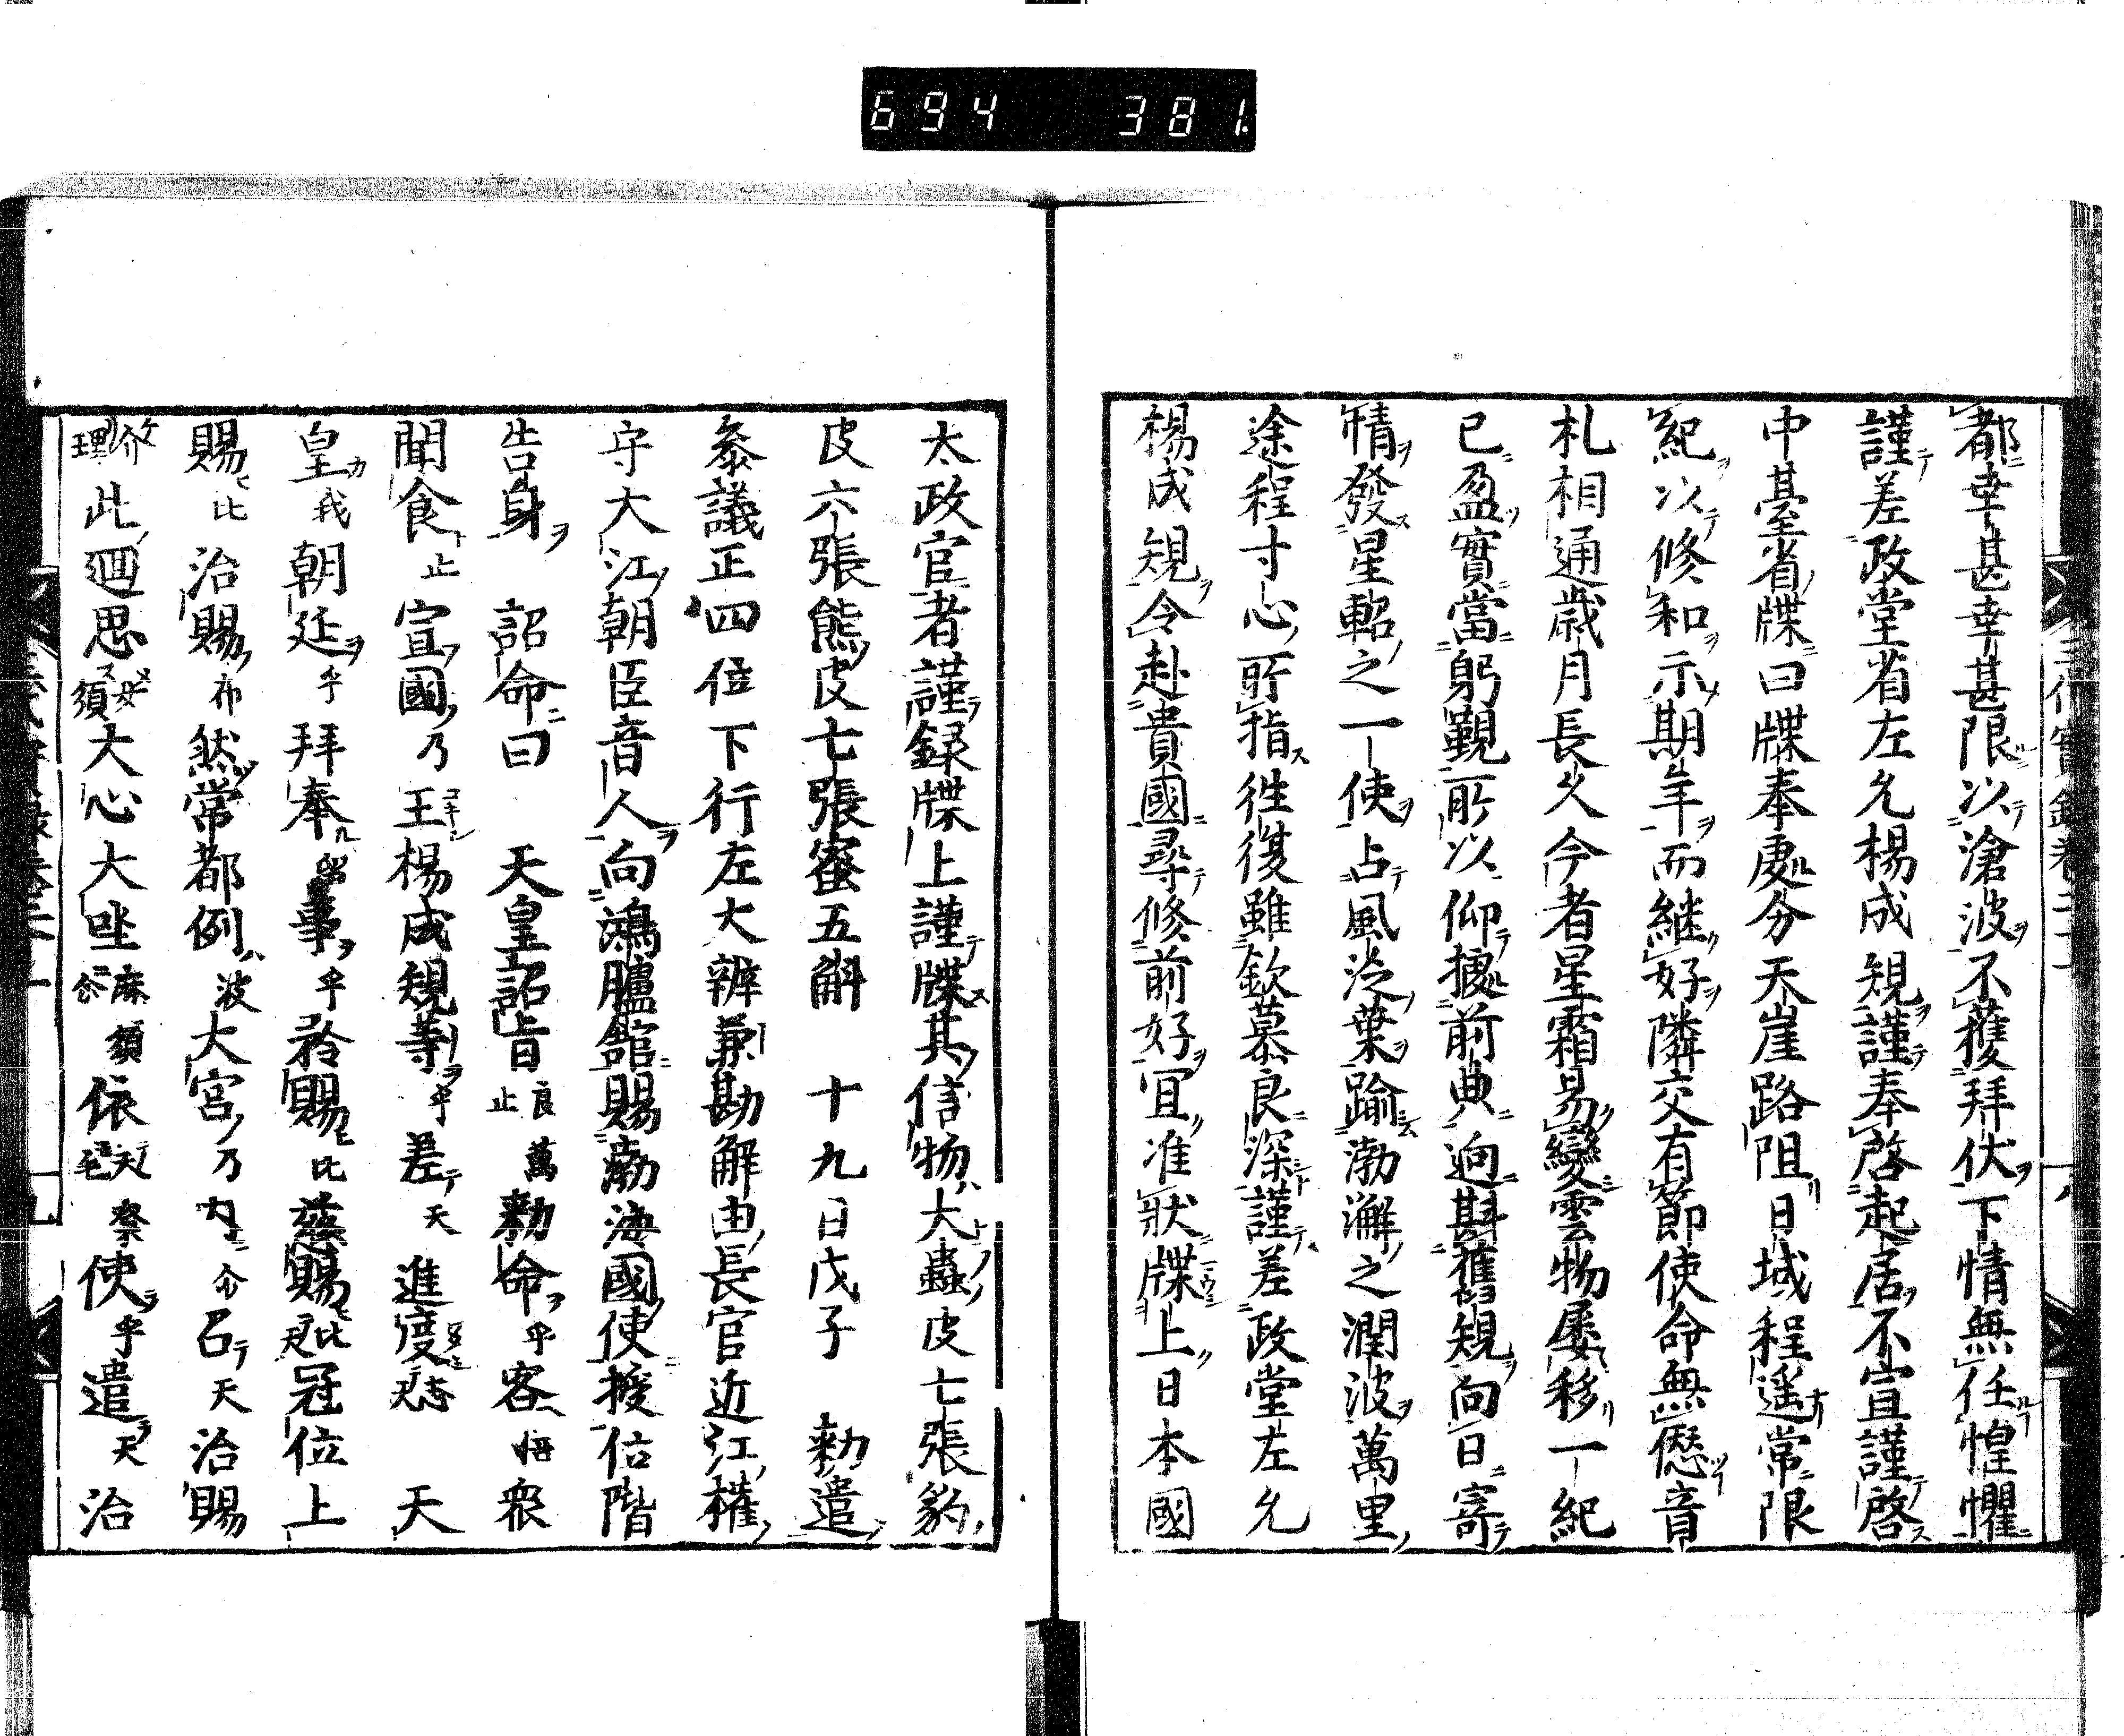 694 381.
都幸甚幸甚限以滄波不獲拜伏下情無任惶懼
謹差政堂省左允楊成規謹奉啓起居不宣謹啓
中臺省牒曰牒奉處分天崖路阻日域程遥常限
紀以修和示期年而継好隣交有節使命無愆音
札相通歳月長久今者星霜易變雲物屡移一紀
已盈實當躬覲所以仰據前典逈斟舊規向日寄
情發星軺之一使占風泛葉踰渤澥之潤波萬里
途程寸心所指徃復雖欽慕良深謹差政堂左允
楊成規令赴貴國尋修前好宜准狀牒上日本國
太政官者謹録牒上謹牒其信物大蟲皮七張豹
皮六張熊皮七張蜜五斛 十九日戊子 勅遣
叅議正四位下行左大辨兼勘解由長官近江權
守大江朝臣音人向鴻臚舘賜渤海國使授位階
告身 詔命曰 天皇詔旨良萬止勅命乎客悟衆
聞食止宣國乃王楊成規等乎差天進度志天 天
皇我朝廷乎拜奉留事乎矜賜比慈賜比天冠位上
賜比治賜布然常都例波大宮乃内尓召天治賜
介理此廻思母須大心大坐麻須依天祭使乎遣天治